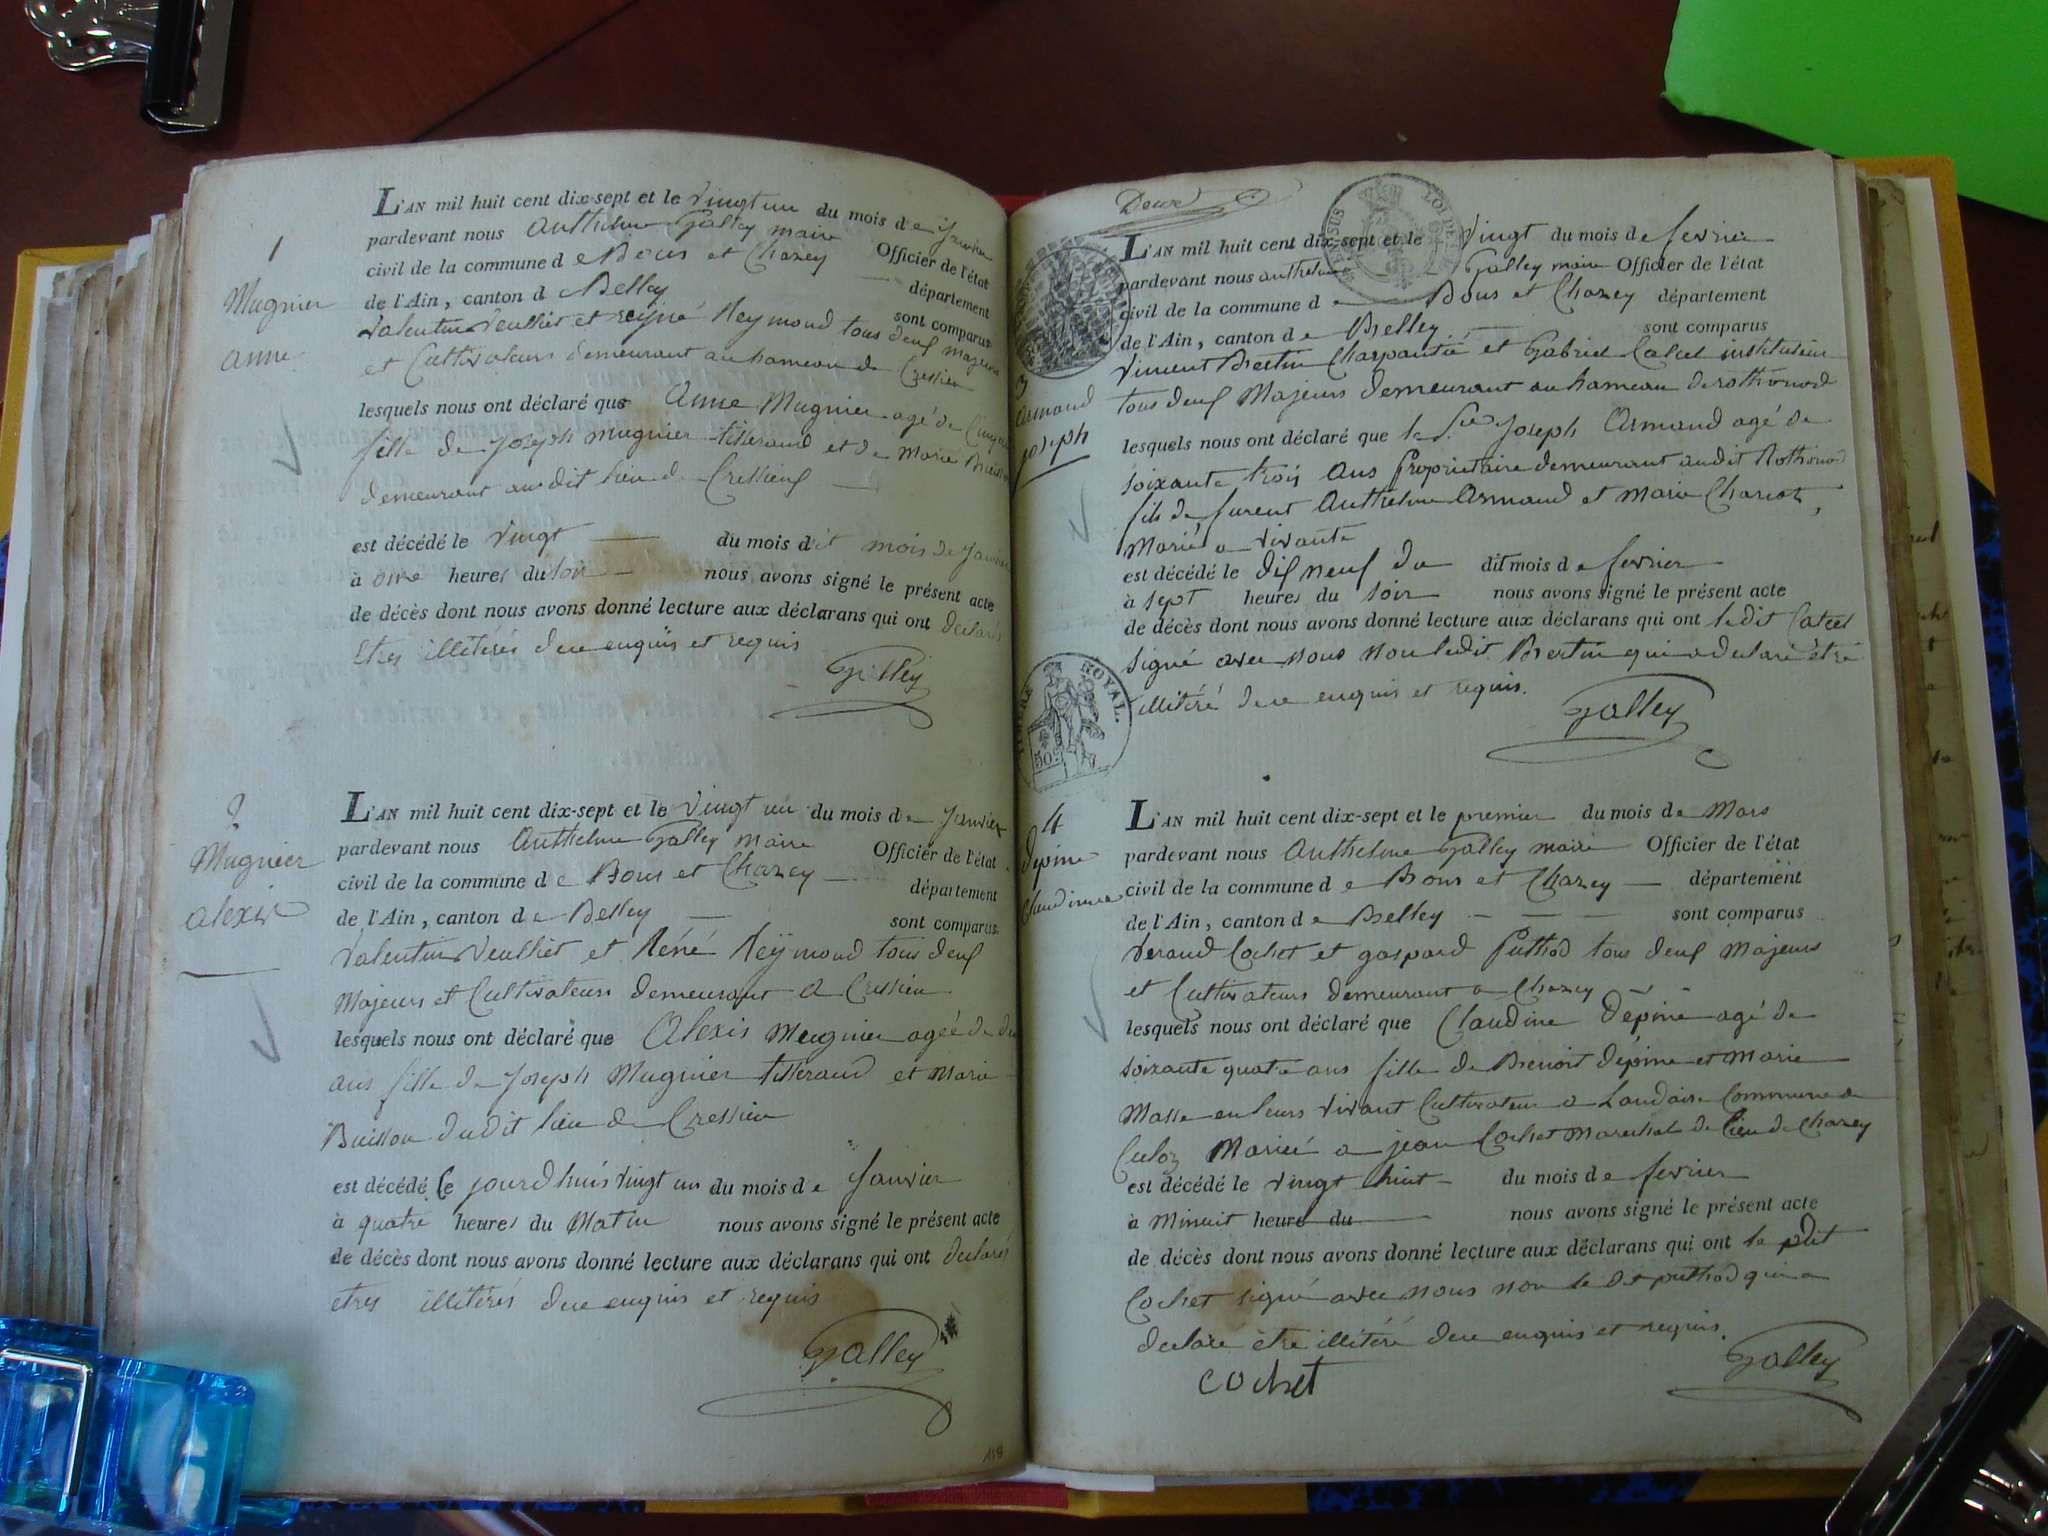 1
Mugnier
anne
L'AN mil huit cent dix-sept et le vingt un du mois de Janvier
pardevant nous Anthelme Galley maire Officier de l'état
civil de la commune de Bons et Chazey département
de l'Ain, canton de Belley sont comparus
Valentin Veulliet et rejné Reymond tous deux majeurs
et Cultivateurs demeurant au hameau de Cressieu
lesquels nous ont déclaré que Anne Mugnier agé de
fille de Joseph mugnier tisserand et de Marie
demeurant au dit lieu de Cressieux
est décédé le vingt du mois dit mois de Janvier
à onze heures du soir nous avons signé le présent acte
de décès dont nous avons donné lecture aux déclarans qui ont declarés
Etres illitérés de ce enquis et requis
Galley
2
Mugnier
alexis
L'AN mil huit cent dix-sept et le vingt un du mois de Janvier
pardevant nous Anthelme Galley Maire Officier de l'état
civil de la commune de Bons et Chazey département
de l'Ain, canton de Belley sont comparus
Valentin Veulliet et Réné Reÿmond tous deux
Majeurs et Cultivateurs demeurant a Cressieu
lesquels nous ont déclaré que Alexis Mugnier agée de
ans fille de Joseph Mugnier tisserand et Marie
Buisson dudit lieu de Cressieu
est décédé le jourdhuis vingt un du mois de Janvier
à quatre heures du Matin nous avons signé le présent acte
de décès dont nous avons donné lecture aux déclarans qui ont declarés
etres illitérés de ce enquis et requis
Galley
118
Deux
3
Armand
joseph
L'AN mil huit cent dix-sept et le vingt du mois de fevrier
pardevant nous anthelme Galley maire Officier de l'état
civil de la commune de Bons et Chazey département
de l'Ain, canton de Belley sont comparus
Vincent Bertin Charpantié et Gabriel Calet instituteur
tous deux Majeurs demeurant au hameau de rothonod
lesquels nous ont déclaré que le Joseph Armand agé de
soixante trois ans Proprietaire demeurant audit Rothonod
fils de furent Anthelme Armand et Marie Chariot,
Marié a vivante
est décédé le dix neuf du dit mois de fevrier
à sept heures du soir nous avons signé le présent acte
de décès dont nous avons donné lecture aux déclarans qui ont le dit Calet
signé avec nous non ledit Bertin qui a declaré être
illitéré de ce enquis et requis.
Galley
TIMBRE ROYAL.
50c
4
Dépine
Claudine
L'AN mil huit cent dix-sept et le premier du mois de Mars
pardevant nous Anthelme Galley maire Officier de l'état
civil de la commune de Bons et Chazey département
de l'Ain, canton de Belley sont comparus
Veraud Cochet et gaspard Puthod tous deux Majeurs
et Cultivateurs demeurant a Chazey
lesquels nous ont déclaré que Claudine Dépine agé de
soixante quatre ans fille de Benoit Dépine et Marie
Masse en leurs vivant Cultivateur a Landaise Commune de
Culoz Mariée a jean Cochet Marechal de lieu de Chazey
est décédé le vingt huit du mois de fevrier
à Minuit heure du nous avons signé le présent acte
de décès dont nous avons donné lecture aux déclarans qui ont le dit
Cochet signé avec nous non le dit puthod qui a
declare être illitéré de ce enquis et requis.
cochet
Galley